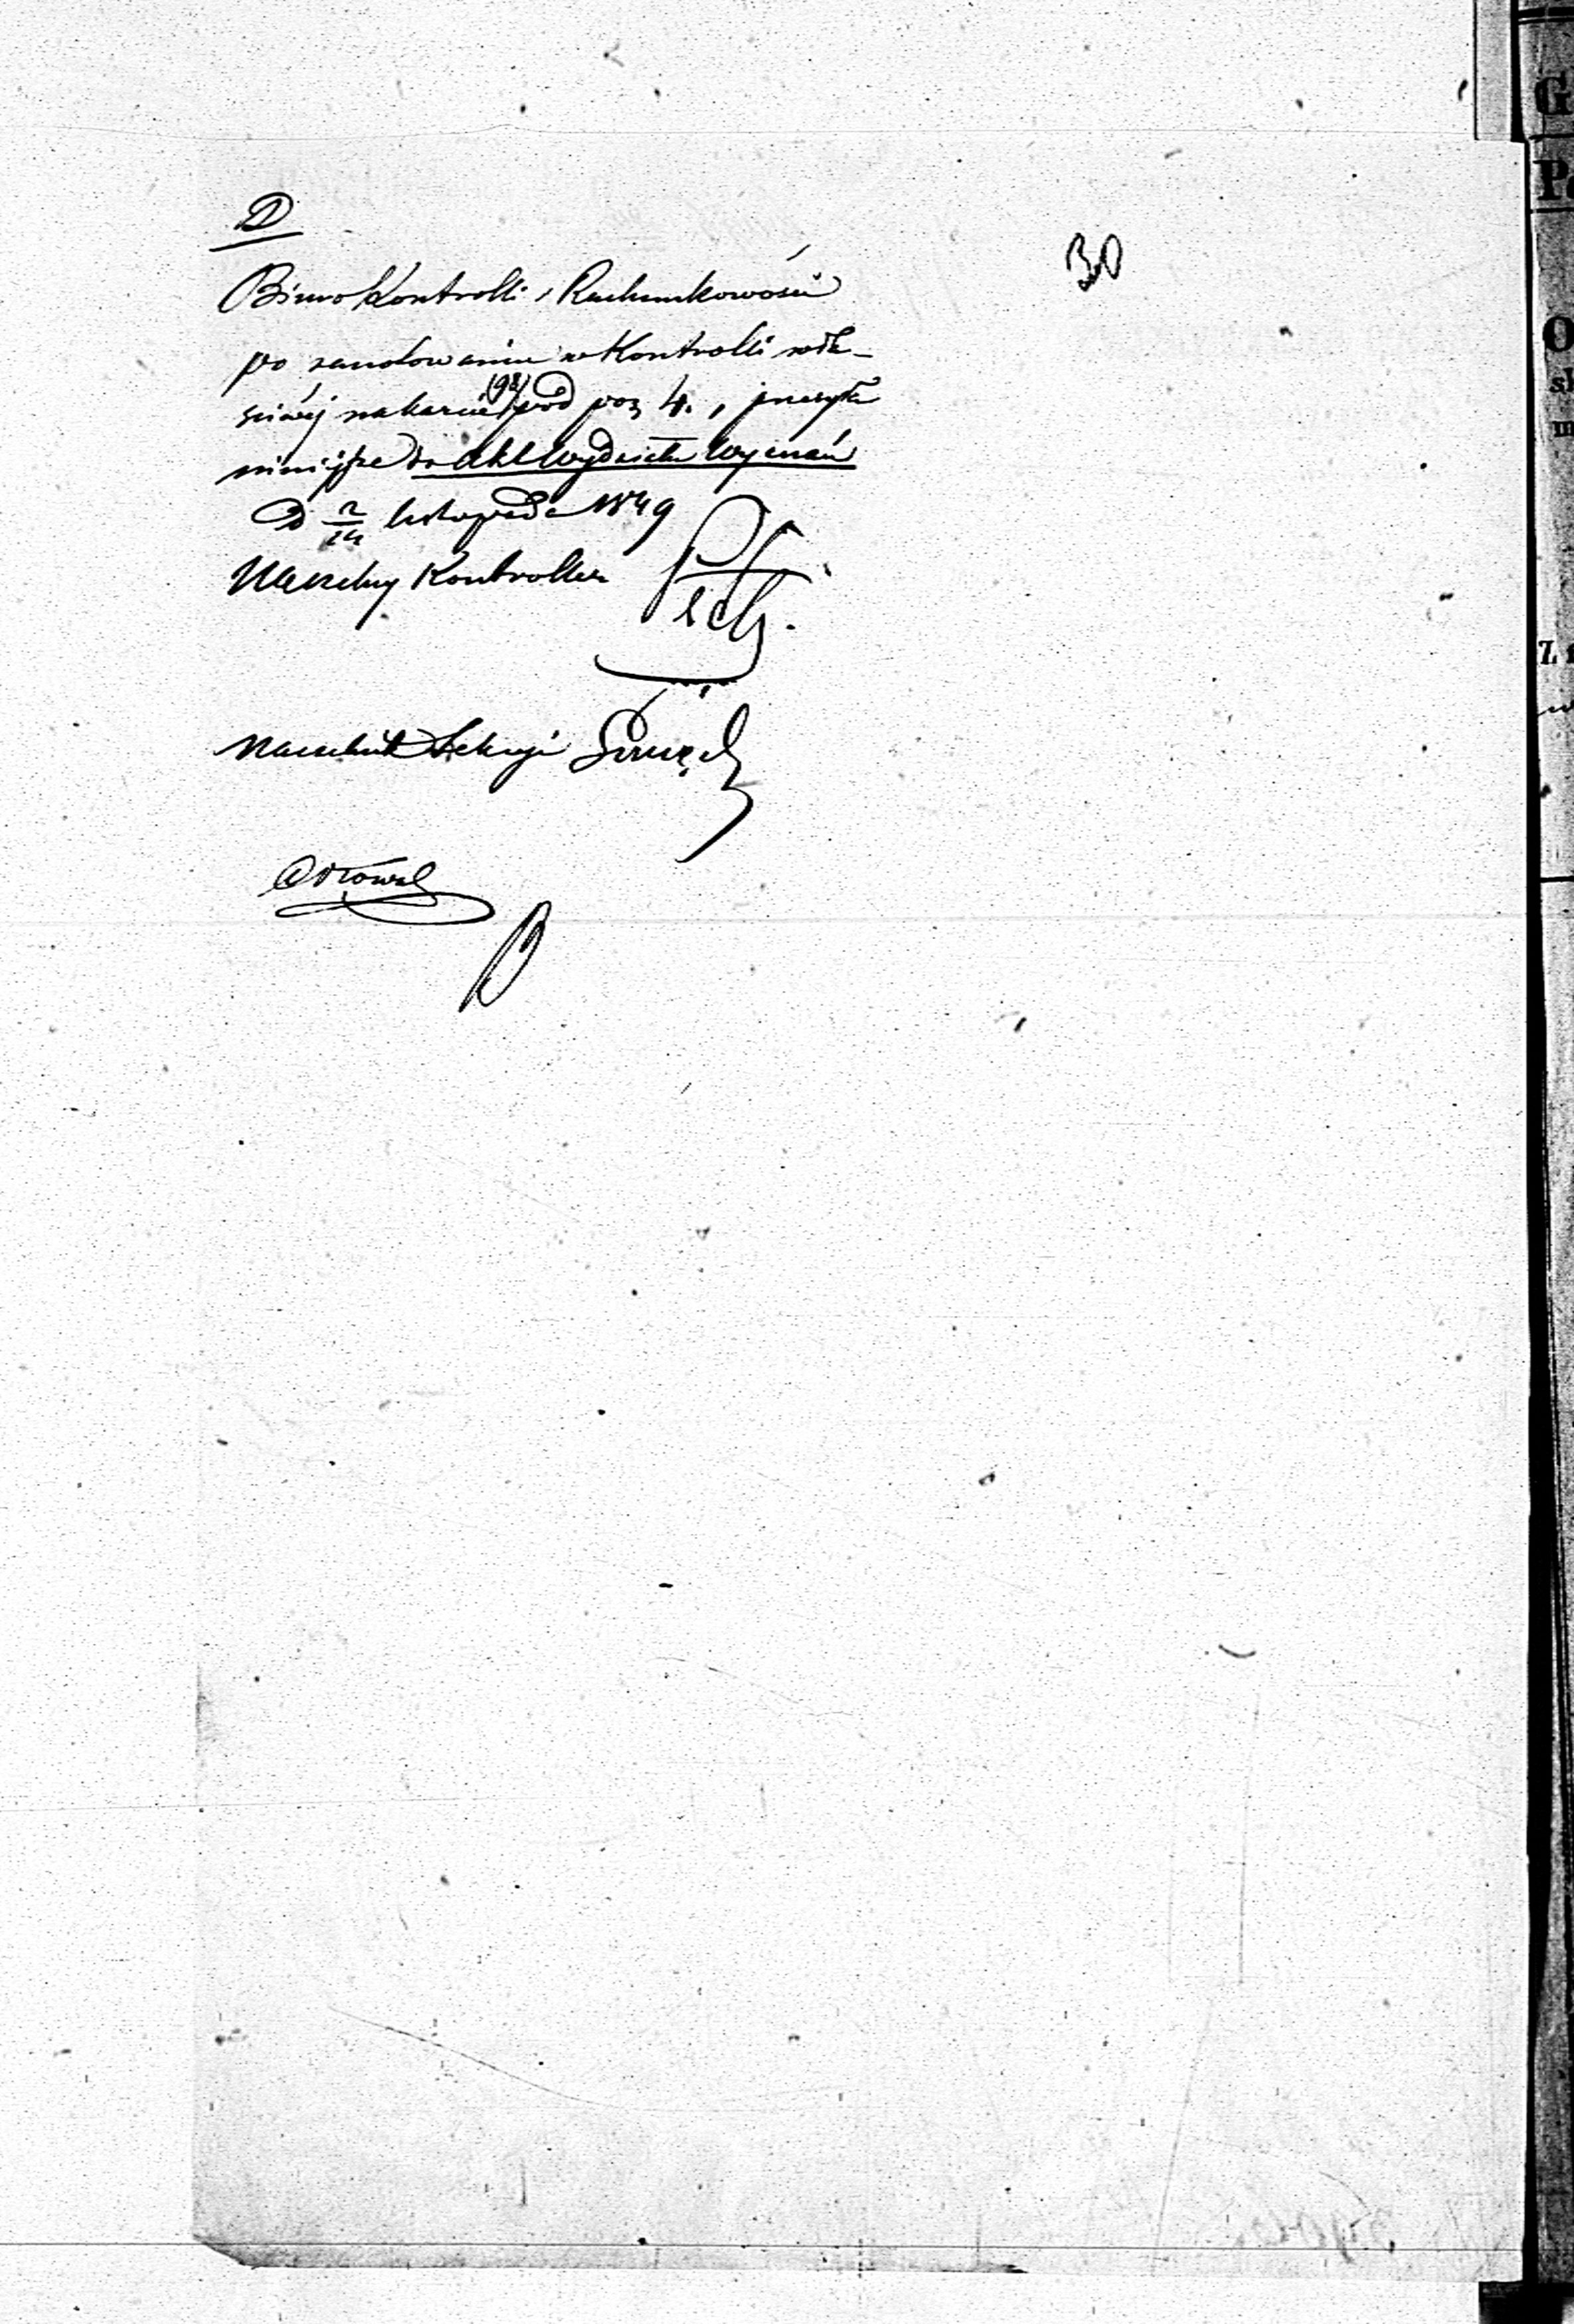 D
30
Biuro Kontrolli i Rachunkowości
po zanotowaniu w Kontrolli wła-
sciwéj na karcie (98) pod poz 4., przesyła
niniejsze do akt Wydziału Wyznań
D 2/14 listopada 1849
Naczelny Kontroller
Naczelnik Sekcyi